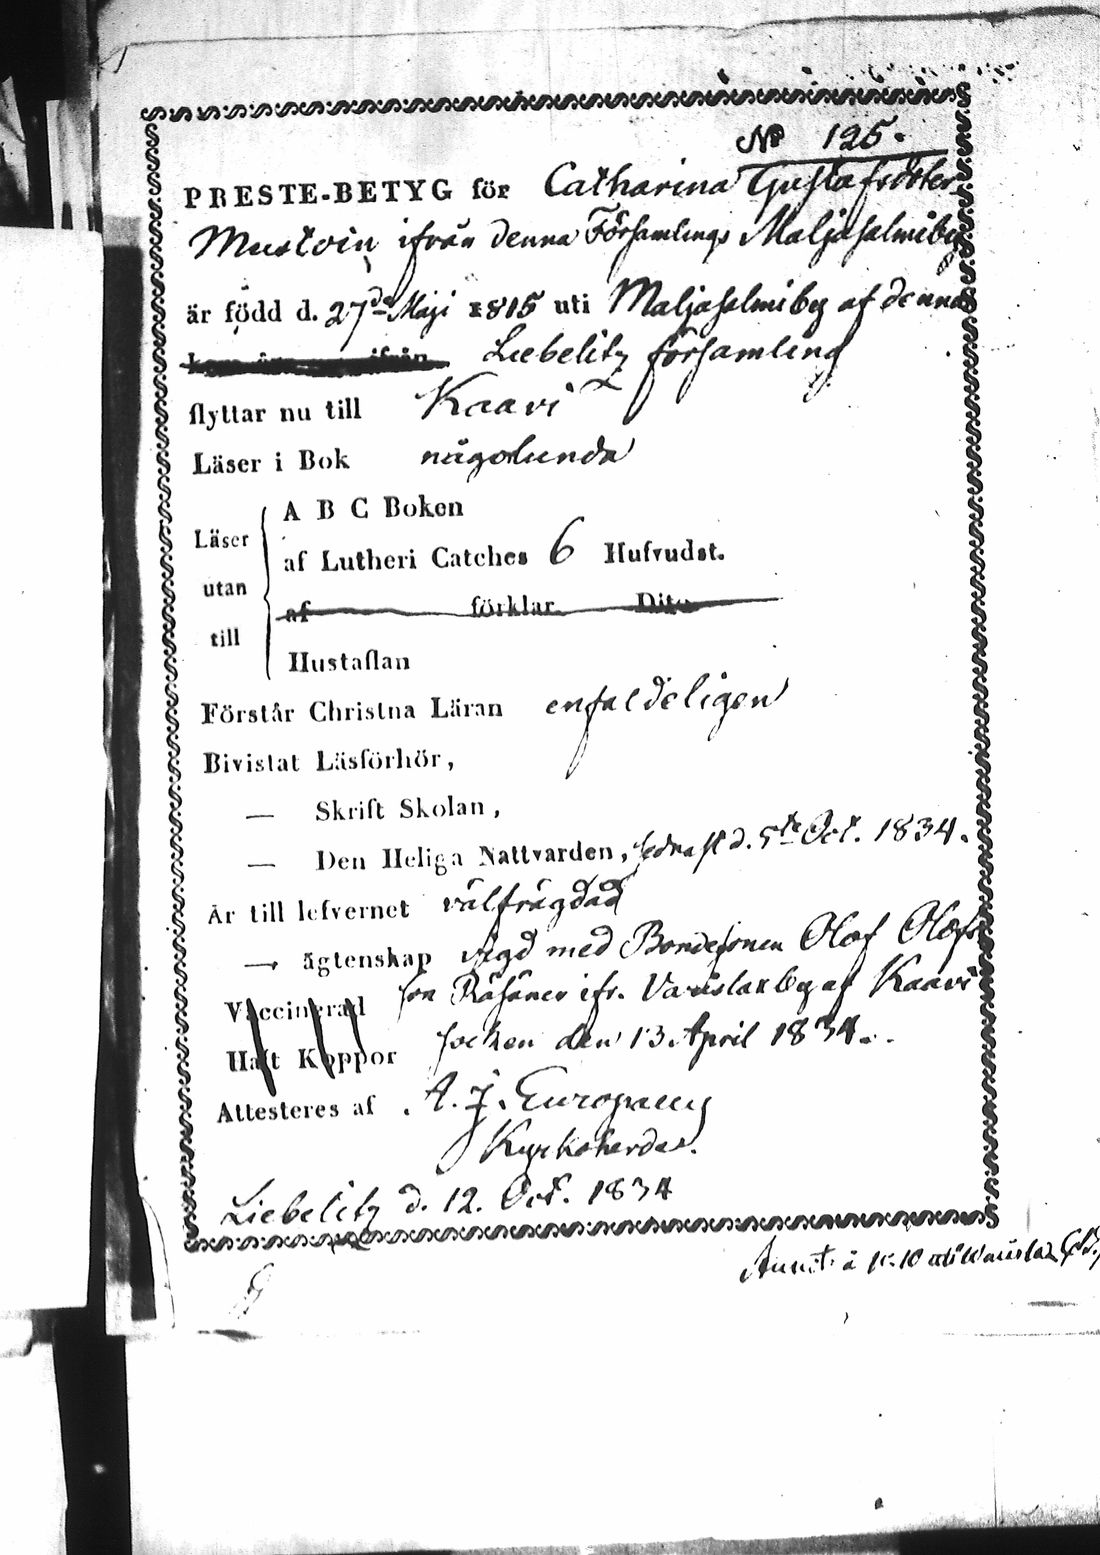 No 125.
PRESTE-BETYG för Catharina Gustafsdoter
Mustoin ifrån denna Församlings Maljasalmiby
är född d. 27de Maji 1815 uti Maljasalmiby af denna
Liebelitz församling
flyttar nu till Kaavi
Läser i Bok någolunda
A B C Boken
Läser
af Lutheri Catches 6 Hufvudst.
utan
af förklar. Dito
till
Hustaflan
Förstår Christna Läran enfaldeligen
Bivistat Läsförhör,
— Skrift Skolan,
— Den Heliga Nattvarden, sednast d. 5te Oct. 1834.
Är till lefvernet välfrägdad
— ägtenskap vigd med Bondesonen Olof Olofs
Vaccinerad son Räsänen ifr. Vauslax by af Kaavi
Haft Koppor socken den 13 April 1834.
Attesteres af A. J. Europaeus
Kyrkoherde.
Liebelitz d. 12. Oct. 1834
Annot. å